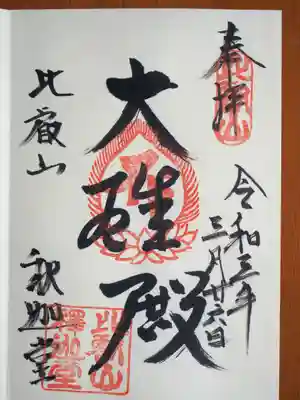 奉拝
比叡山
令和三年
三月廿六日
大雄殿
比叡山
釈迦堂
比叡山
釋迦堂